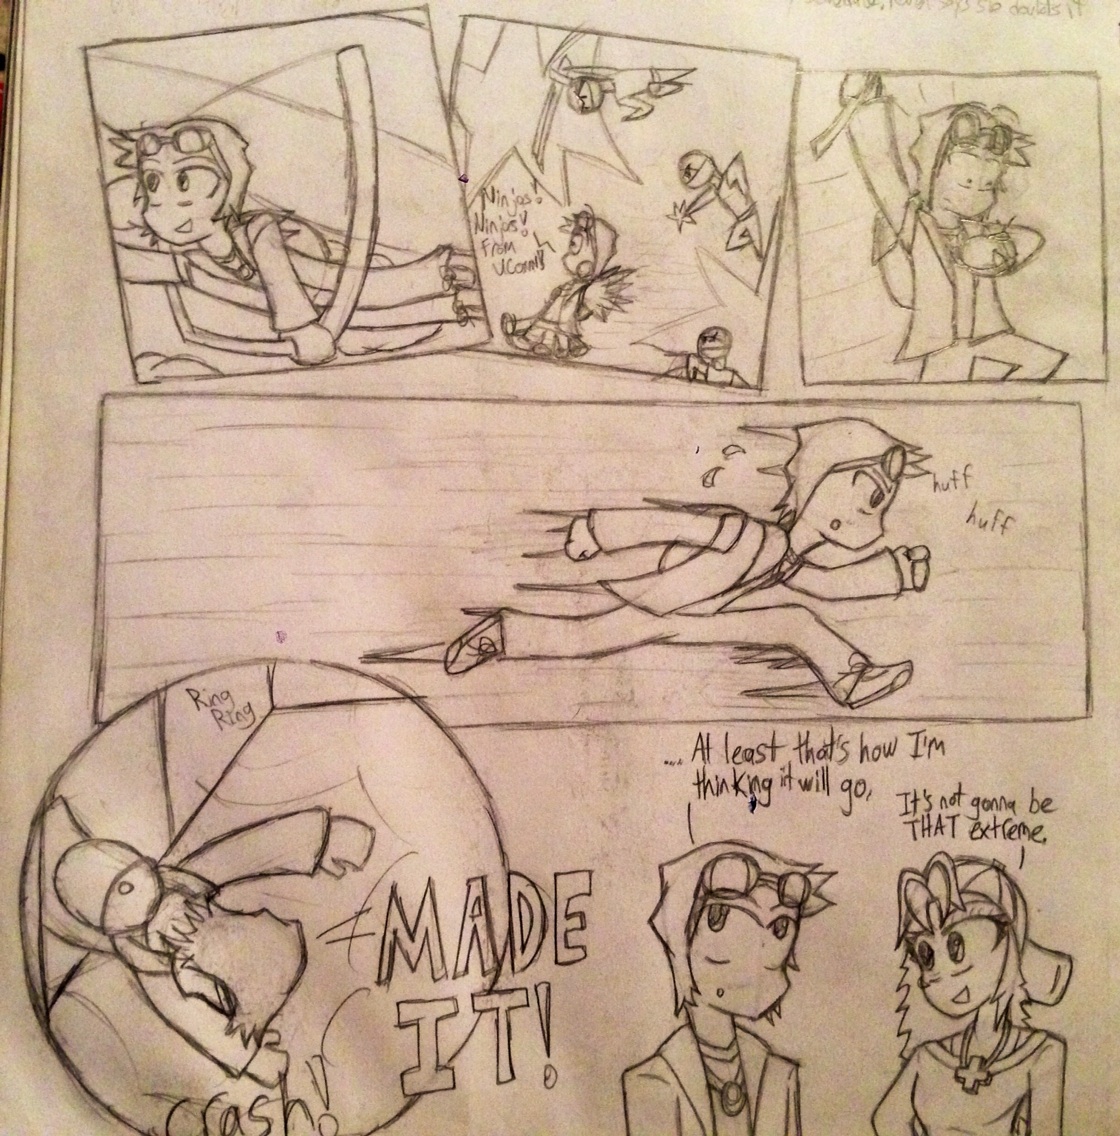 says she doubts it
Ninjas!
Ninjas!
From
UConn!!
huff
huff
Ring
Ring
MADE
IT!
crash!!
.... At least that's how I'm
thinking it will go.
It's not gonna be
THAT extreme.